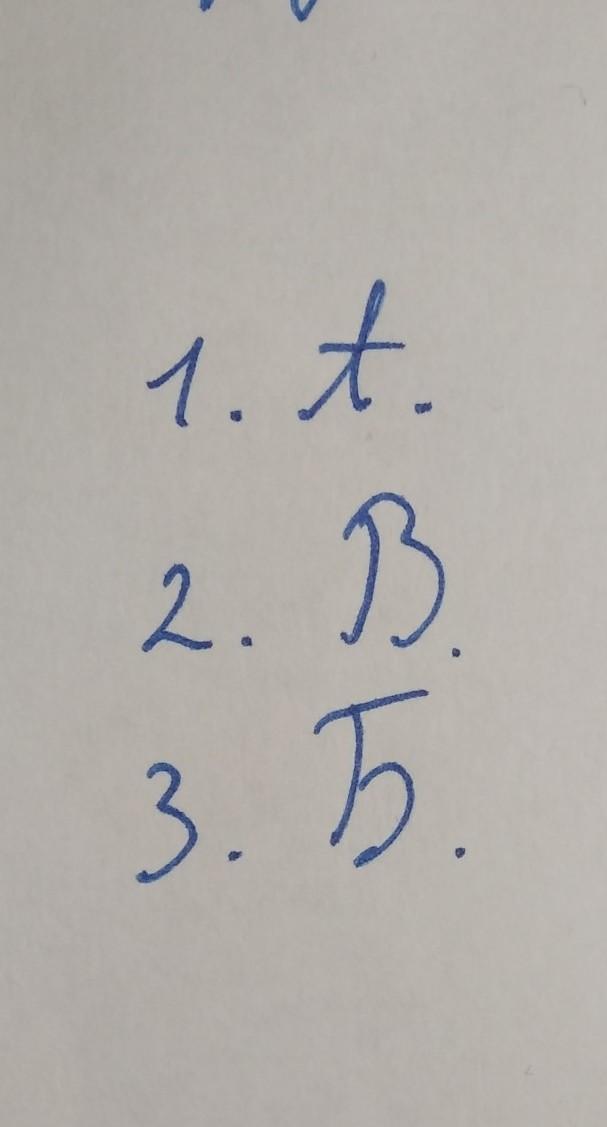 1. А.
2. В.
3. Б.